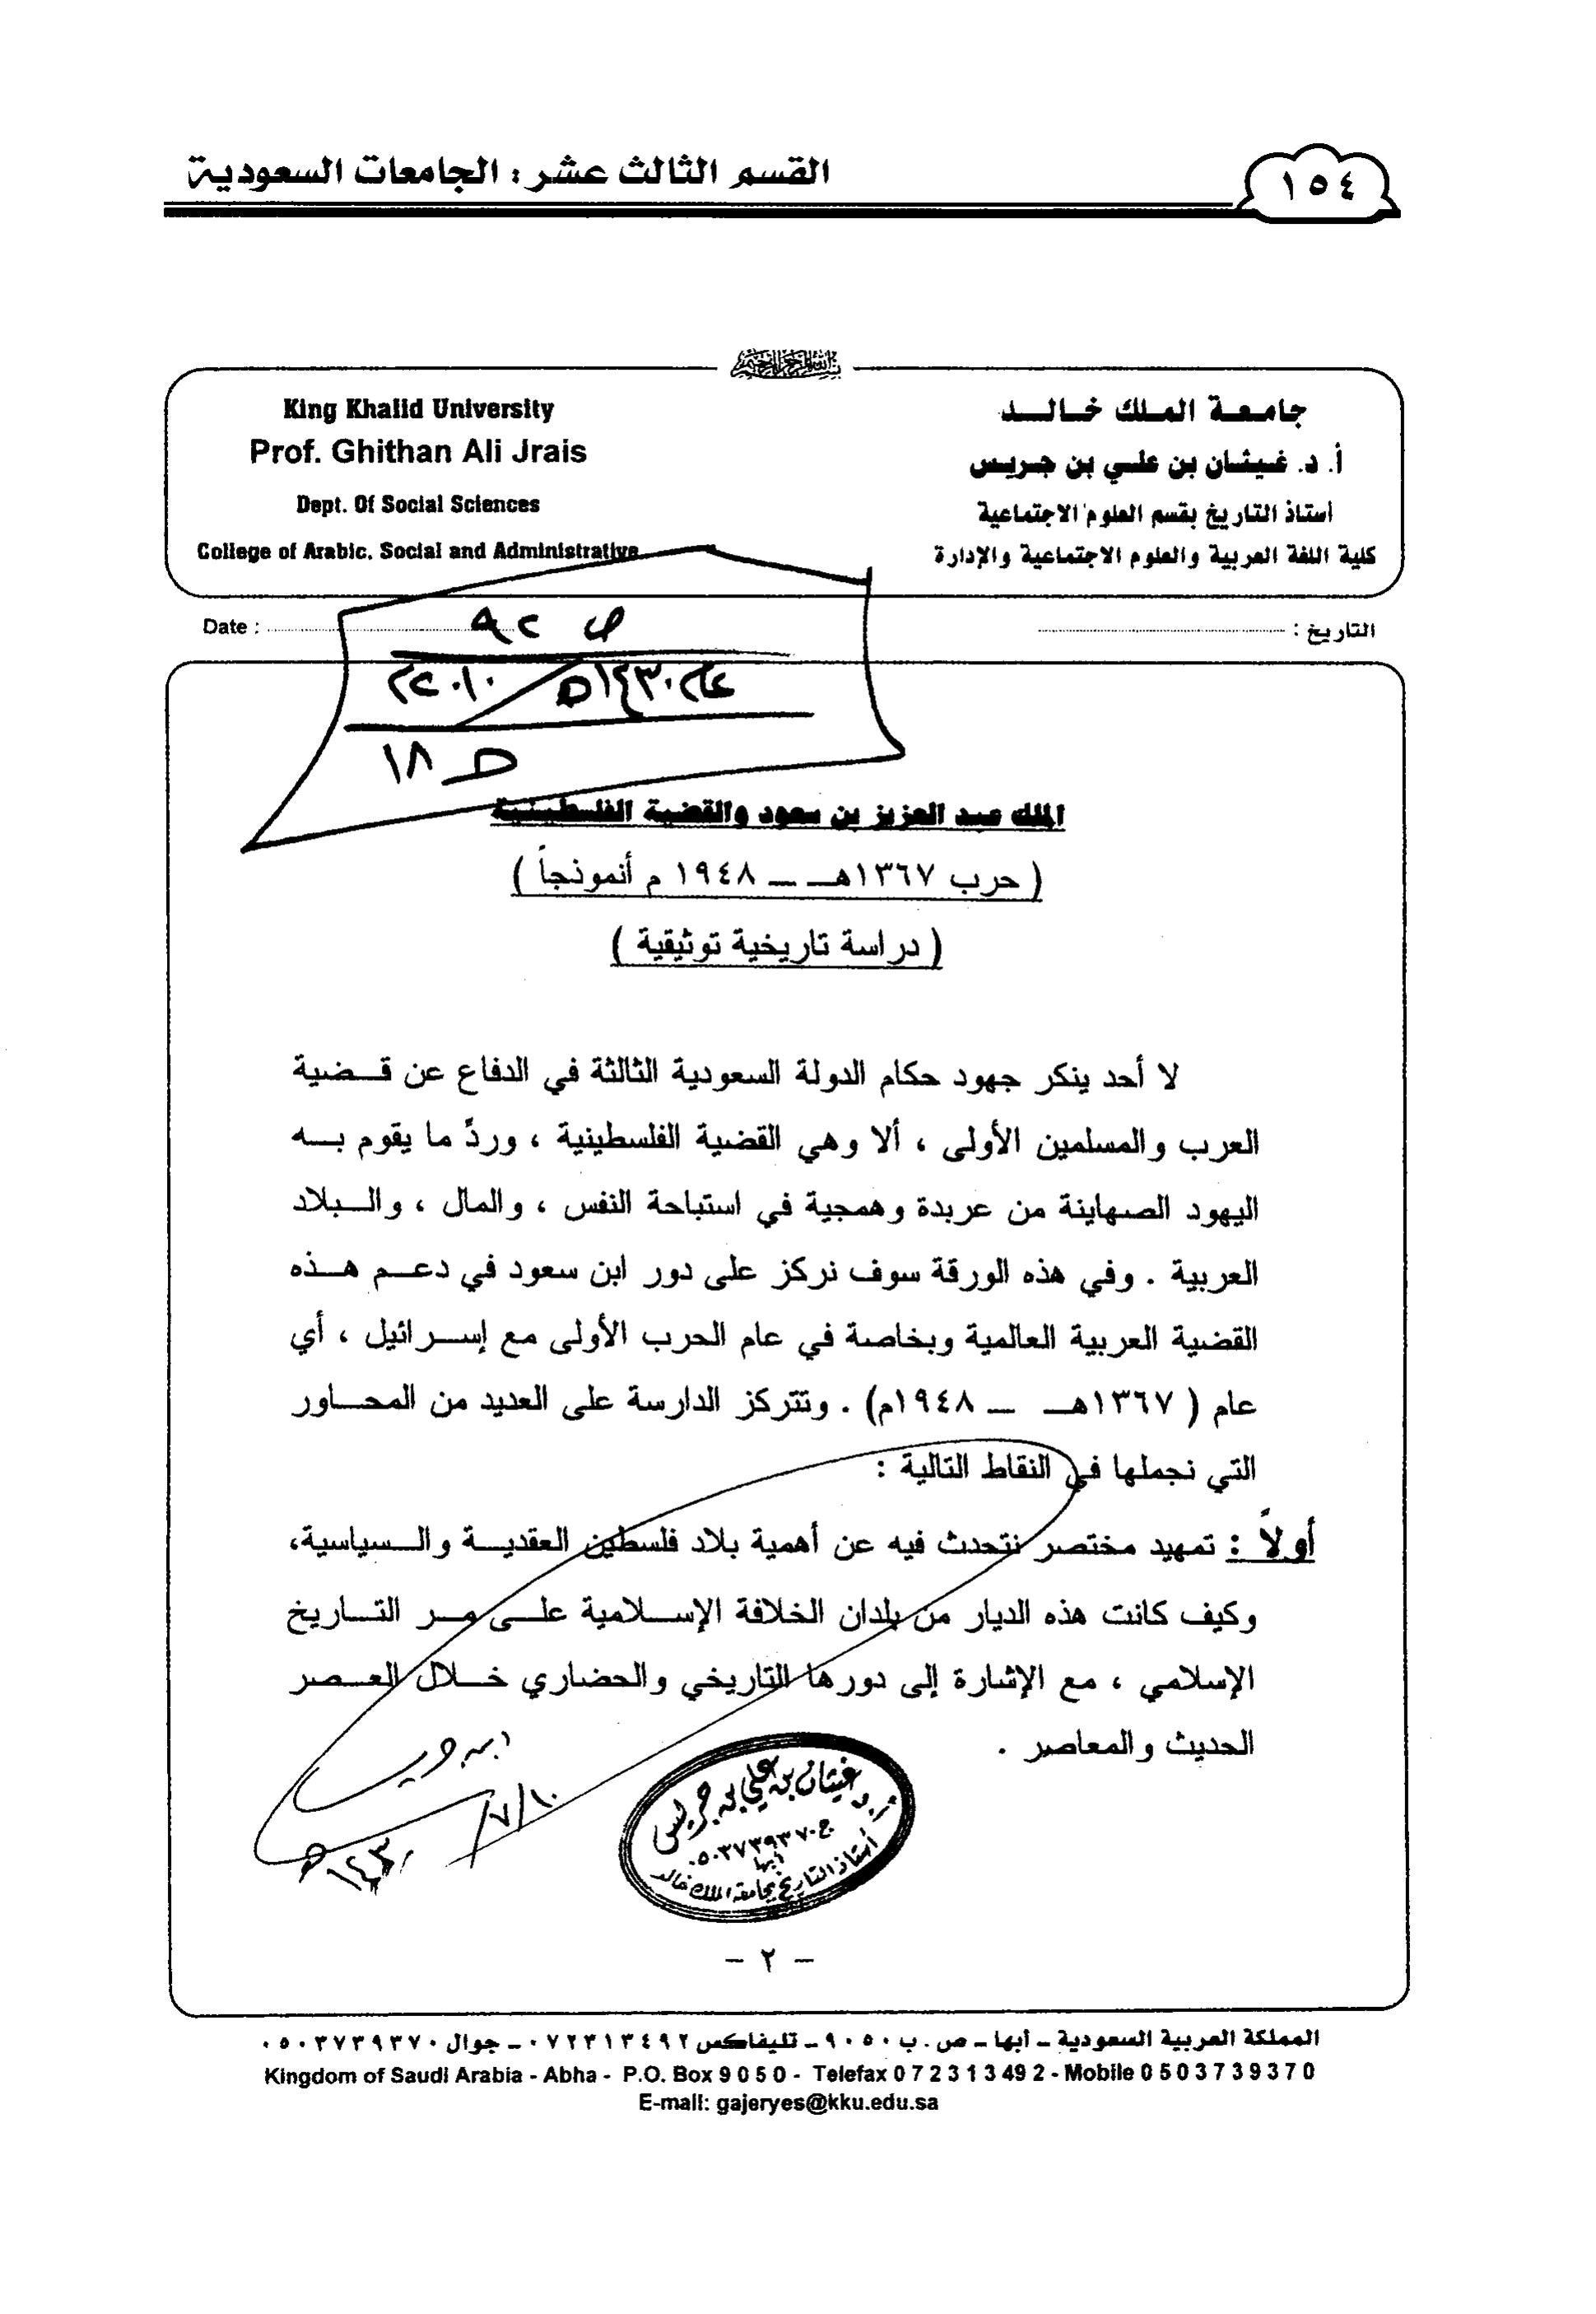 القسم الثالث عشر : الجامعات السعودية
١٥٤
بسم الله الرحمن الرحيم
جامعة الملك خالد
أ. د. غيثان بن علي بن جريس
أستاذ التاريخ بقسم العلوم الاجتماعية
كلية اللغة العربية والعلوم الاجتماعية والإدارة
King Khalid University
Prof. Ghithan Ali Jrais
Dept. Of Social Sciences
College of Arabic. Social and Administrative
التاريخ :
Date :
عام ١٤٣٠هـ / ٢٠١٠م
الملك عبد العزيز بن سعود والقضية الفلسطينية
( حرب ١٣٦٧هـ – ١٩٤٨ م أنموذجاً )
( دراسة تاريخية توثيقية )
لا أحد ينكر جهود حكام الدولة السعودية الثالثة في الدفاع عن قضية
العرب والمسلمين الأولى ، ألا وهي القضية الفلسطينية ، وردّ ما يقوم به
اليهود الصهاينة من عربدة وهمجية في استباحة النفس ، والمال ، والبلاد
العربية . وفي هذه الورقة سوف نركز على دور ابن سعود في دعم هذه
القضية العربية العالمية وبخاصة في عام الحرب الأولى مع إسرائيل ، أي
عام ( ١٣٦٧هـ – ١٩٤٨م) . وتتركز الدارسة على العديد من المحاور
التي نجملها في النقاط التالية :
أولاً : تمهيد مختصر نتحدث فيه عن أهمية بلاد فلسطين العقدية والسياسية،
وكيف كانت هذه الديار من بلدان الخلافة الإسلامية على مر التاريخ
الإسلامي ، مع الإشارة إلى دورها التاريخي والحضاري خلال العصر
الحديث والمعاصر .
ابن جريس
١٠/٧/١٤٣٠هـ
أ.د غيثان بن علي بن جريس
ج ٠٥٠٣٧٣٩٣٧٠
أبها
أستاذ التاريخ بجامعة الملك خالد
– ٢ –
المملكة العربية السعودية – أبها – ص . ب ٩٠٥٠ – تليفاكس ٠٧٢٣١٣٤٩٢ – جوال ٠٥٠٣٧٣٩٣٧٠
Kingdom of Saudi Arabia - Abha - P.O. Box 9 0 5 0 - Telefax 0 7 2 3 1 3 49 2 - Mobile 0 5 0 3 7 3 9 3 7 0
E-mail: gajeryes@kku.edu.sa